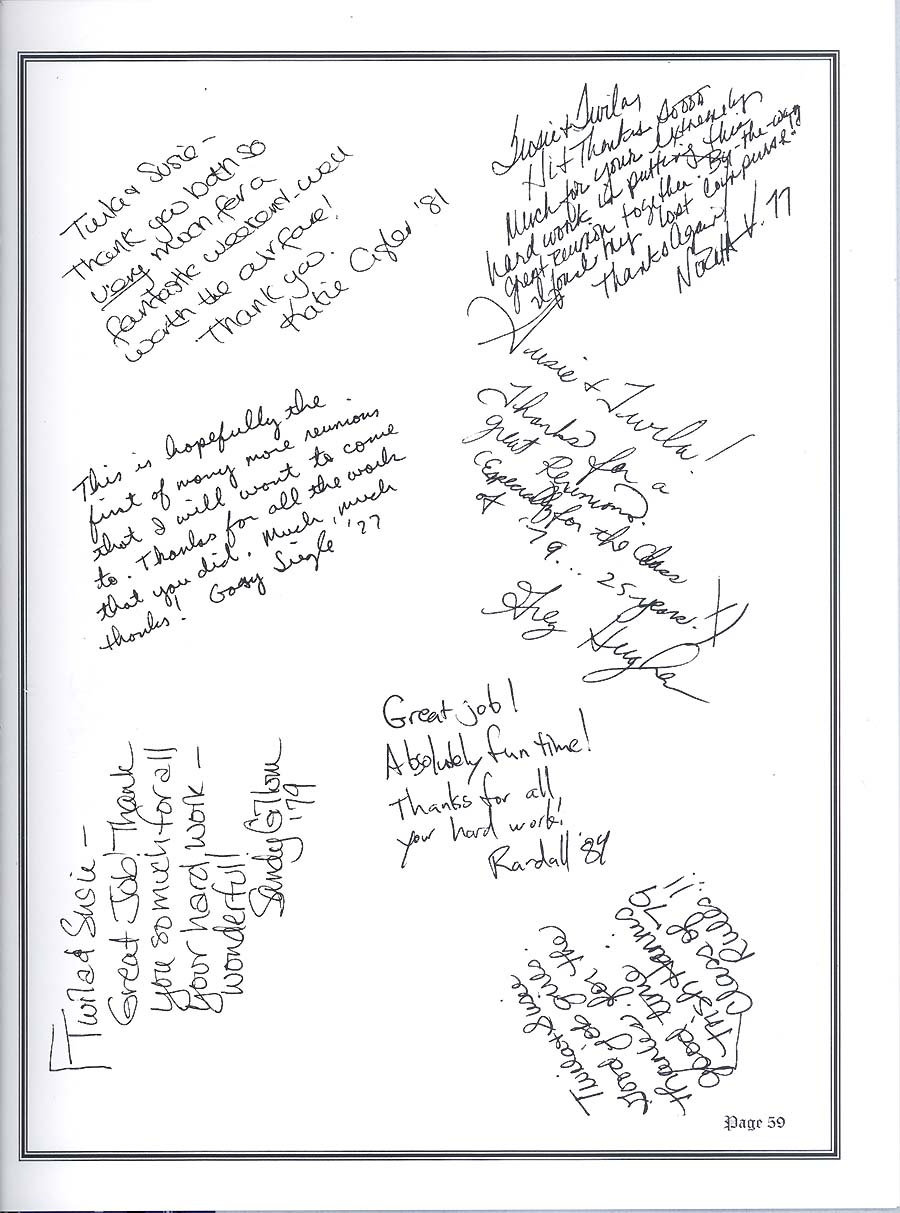 Twila & Susie -
Thank you both so
very much for a
fantastic weekend - well
worth the air fare!
Thank you.
Katie '81
Susie & Twila,
Hi & Thanks soooo
Much for your extremely
hard work in putting this
great reunion together. By-the-way
I found my lost compurse!
Thanks Again!
V. 77
Susie & Twila!
Thanks for a
great Reunion.
(Especially for the Class
of '79... 25 years!)
Greg Hughes
This is hopefully the
first of many more reunions
that I will want to come
to. Thanks for all the work
that you did. Much, much
thanks! Gary Siegle '77
Great job!
Absolutely fun time!
Thanks for all
your hard work!
Randall '84
Twila & Susie -
Great Job! Thank
you so much for all
your hard work -
wonderful!
Sandy
'79
Twila & Susie
Good job girls.
thanks for the
good time!
Trish
Class of '79
Rules!!
Page 59